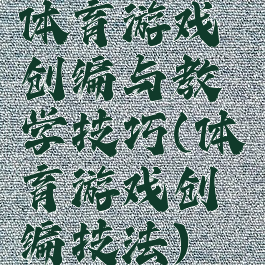 体育游戏
创编与教
学技巧(体
育游戏创
编技法)